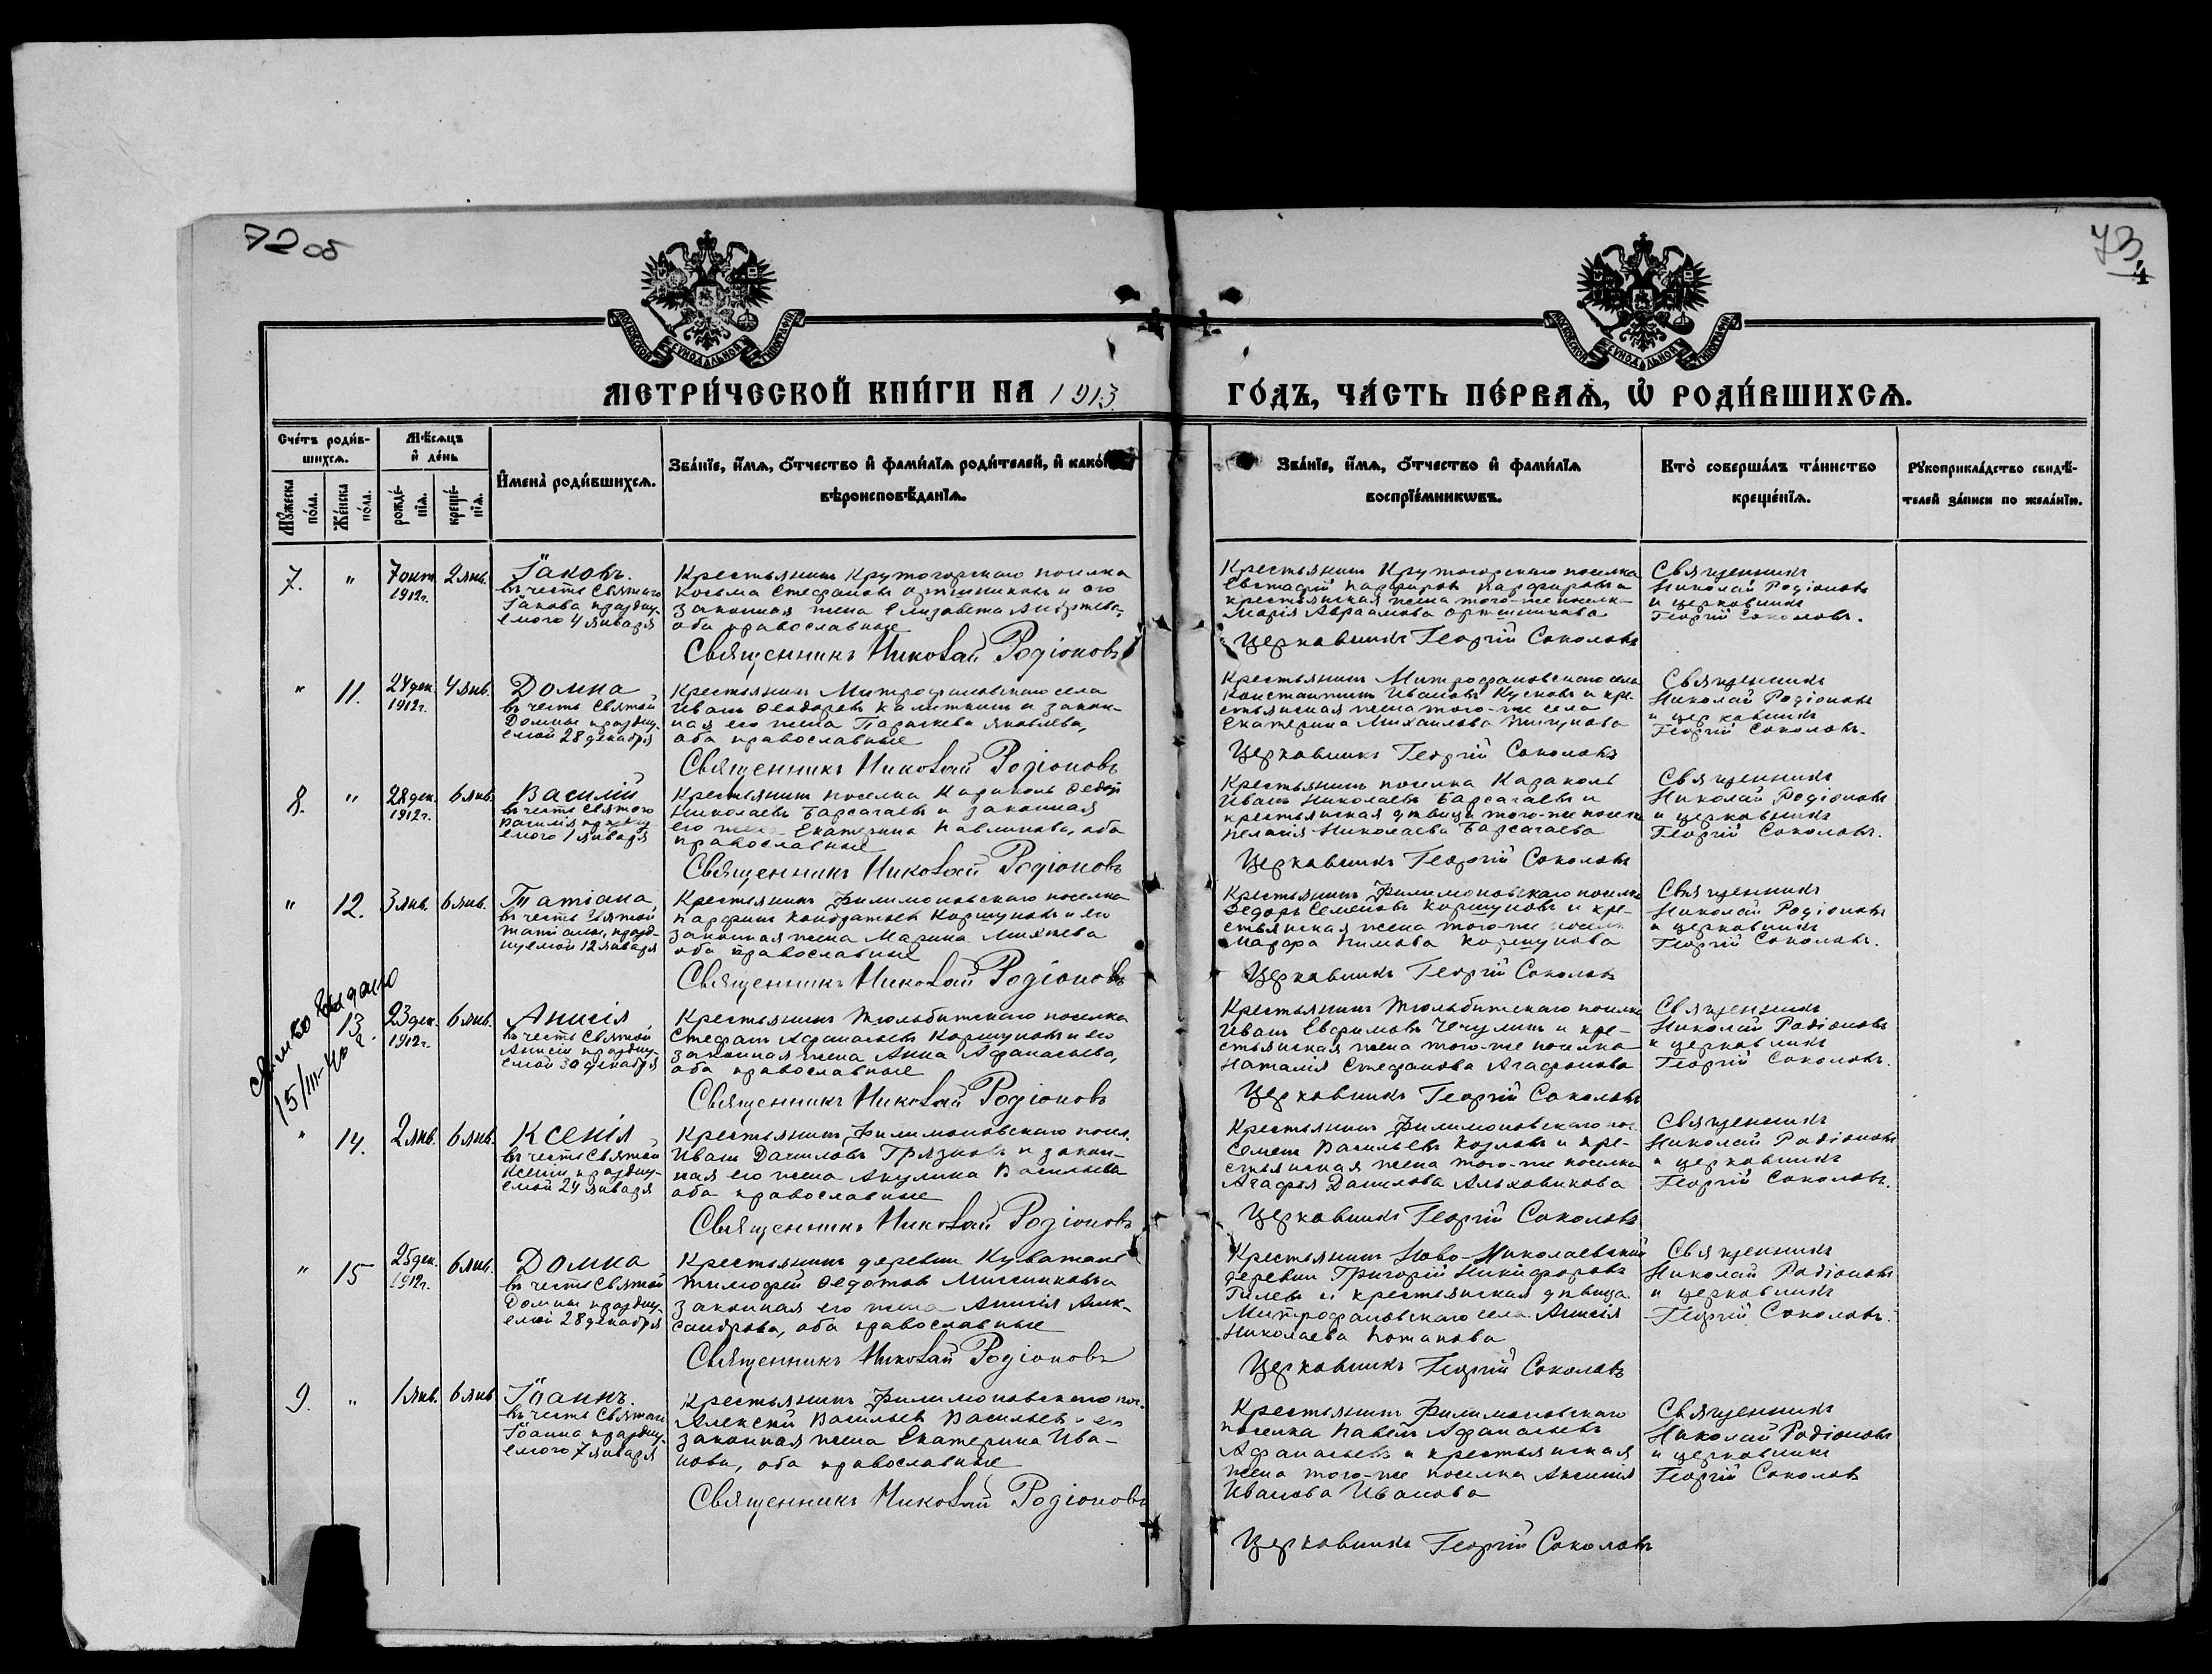 72 об
73
4
МОСКОВСКОЙ СѴНОДАЛЬНОЙ ТИПОГРАФІИ
МОСКОВСКОЙ СѴНОДАЛЬНОЙ ТИПОГРАФІИ
МЕТРИ́ЧЕСКОЙ КНИ́ГИ НА 1913 ГО́ДЪ, ЧА́СТЬ ПЕ́РВАѦ, Ѡ҆ РОДИ́ВШИХСѦ.
Сче́тъ роди́в-
шихсѧ.
Мѣ́сѧцъ
и҆ де́нь
Мꙋ́жеска
по́ла.
Же́нска
по́ла.
рожде́-
нїѧ.
креще́-
нїѧ.
И҆мена̀ роди́вшихсѧ.
Зва́нїе, и҆́мѧ, ѻ҆́тчество и҆ фами́лїѧ роди́телей, и҆ како́й
вѣроисповѣ́данїѧ.
Зва́нїе, и҆́мѧ, ѻ҆́тчество и҆ фами́лїѧ
воспрїе́мникѡвъ.
Кто̀ соверша́лъ та́инство
креще́нїѧ.
Рꙋкоприкла́дство свидѣ́-
телей за́писи по жела́нїю.
7. " 7 окт. 2 янв.
1912г.
Іаковъ.
въ честь Святаго
Іакова праздну-
емого 4 января
Крестьянинъ Крутогорскаго поселка
Косьма Стефановъ Ортышниковъ и его
законная жена Елизавета Андреева,
оба православные
Священникъ Николай Родіоновъ
Крестьянинъ Крутогорскаго поселка
Евстафій Парфировъ и
крестьянская жена того-же поселк-
Марія Авраамова
Церковникъ Георгій Соколовъ
Священникъ
Николай Родіоновъ
и церковникъ
Георгій Соколовъ.
" 11. 24 дек. 4 янв.
1912г.
Домна
въ честь Святой
Домны праздну-
емой 28 декабря
Крестьянинъ Митрофановскаго села
Иванъ Феодоровъ Калиткинъ и закон-
ная его жена Параскева Яковлева,
оба православные
Священникъ Николай Родіоновъ
Крестьянинъ Митрофановскаго села
Константинъ Ивановъ Кусковъ и кре-
стьянская жена того-же села
Екатерина Михаилова Пигунова
Церковникъ Георгій Соколовъ
Священникъ
Николай Родіоновъ
и церковникъ
Георгій Соколовъ.
8. " 28 дек. 6 янв.
1912г.
Василій
въ честь Святого
Василія праздну
емого 1 января
Крестьянинъ поселка Караколь Федоръ
Николаевъ Барсагаевъ и законная
его жена Екатерина Павлинова, оба
православные
Священникъ Николай Родіоновъ
Крестьянинъ поселка Караколь
Иванъ Николаевъ Барсагаевъ и
крестьянская дѣвица того-же поселка
Пелагія Николаева Барсагаева
Церковникъ Георгій Соколовъ
Священникъ
Николай Родіоновъ
и церковникъ
Георгій Соколовъ.
" 12. 3 янв. 6 янв.
Татіана,
въ честь Святой
Татіаны, празд-
нуемой 12 января
Крестьянинъ Филимоновскаго поселка
Парфинъ Кондратьевъ Коршуновъ и его
законная жена Марина Михеева
оба православные
Священникъ Николай Родіоновъ
Крестьянинъ Филимоновскаго поселка
Федоръ Семеновъ Коршуновъ и кре-
стьянская жена того-же поселк
Марфа Пимова Коршунова
Церковникъ Георгій Соколовъ
Священникъ
Николай Родіоновъ
и церковникъ
Георгій Соколовъ.
выдано
15/III-40 г.
13 23 дек. 6 янв.
1912г.
Анисія
въ честь Святой
Анисіи праздну-
емой 30 декабря
Крестьянинъ Тюльбитскаго поселка
Стефанъ Афанасьевъ Коршуновъ и его
законная жена Анна Афанасьева,
оба православные
Священникъ Николай Родіоновъ
Крестьянинъ Тюльбитскаго поселка
Иванъ Евфимовъ Чечулинъ и кре-
стьянская жена того-же поселка
Наталія Стефанова Агафонова
Церковникъ Георгій Соколовъ
Священникъ
Николай Радіоновъ
и церковникъ
Георгій Соколовъ.
" 14. 2 янв. 6 янв.
Ксенія
въ честь Святой
Ксеніи, праздну-
емой 24 января
Крестьянинъ Филимоновскаго посел.
Иванъ Даниловъ Грязновъ и закон-
ная его жена Акулина Васильева
оба православные
Священникъ Николай Родіоновъ
Крестьянинъ Филимоновскаго пос.
Семенъ Васильевъ Козловъ и кре-
стьянская жена того-же поселка
Агафія Данилова Альховикова
Церковникъ Георгій Соколовъ
Священникъ
Николай Радіоновъ
и церковникъ
Георгій Соколовъ.
" 15 25 дек. 6 янв.
1912г.
Домна
въ честь Святой
Домны праздну-
емой 28 декабря
Крестьянинъ деревни Куватане
Тимофей Федотовъ Мисниковъ и
законная его жена Анисія Алек-
сандрова, оба православные
Священникъ Николай Родіоновъ
Крестьянинъ Ново-Николаевской
деревни Григорій Никифоровъ
Гилевъ и крестьянская дѣвица
Митрофановскаго села Анисія
Николаева Потапова
Церковникъ Георгій Соколовъ
Священникъ
Николай Радіоновъ
и церковникъ
Георгій Соколовъ.
9. " 1 янв. 6 янв
Іоаннъ.
въ честь Святого
Іоанна праздну-
емого 7 января
Крестьянинъ Филимоновскаго пос.
Алексѣй Васильевъ Васильевъ и его
законная жена Екатерина Ива-
нова, оба православные
Священникъ Николай Родіоновъ
Крестьянинъ Филимоновскаго
поселка Павелъ Афанасьевъ
Афанасьевъ и крестьянская
жена того-же поселка Аксинія
Иванова Иванова
Церковникъ Георгій Соколовъ
Священникъ
Николай Радіоновъ
и церковникъ
Георгій Соколов